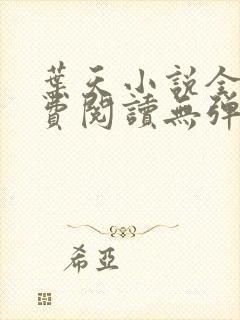 葉天小說全
費閱讀無彈
希亞